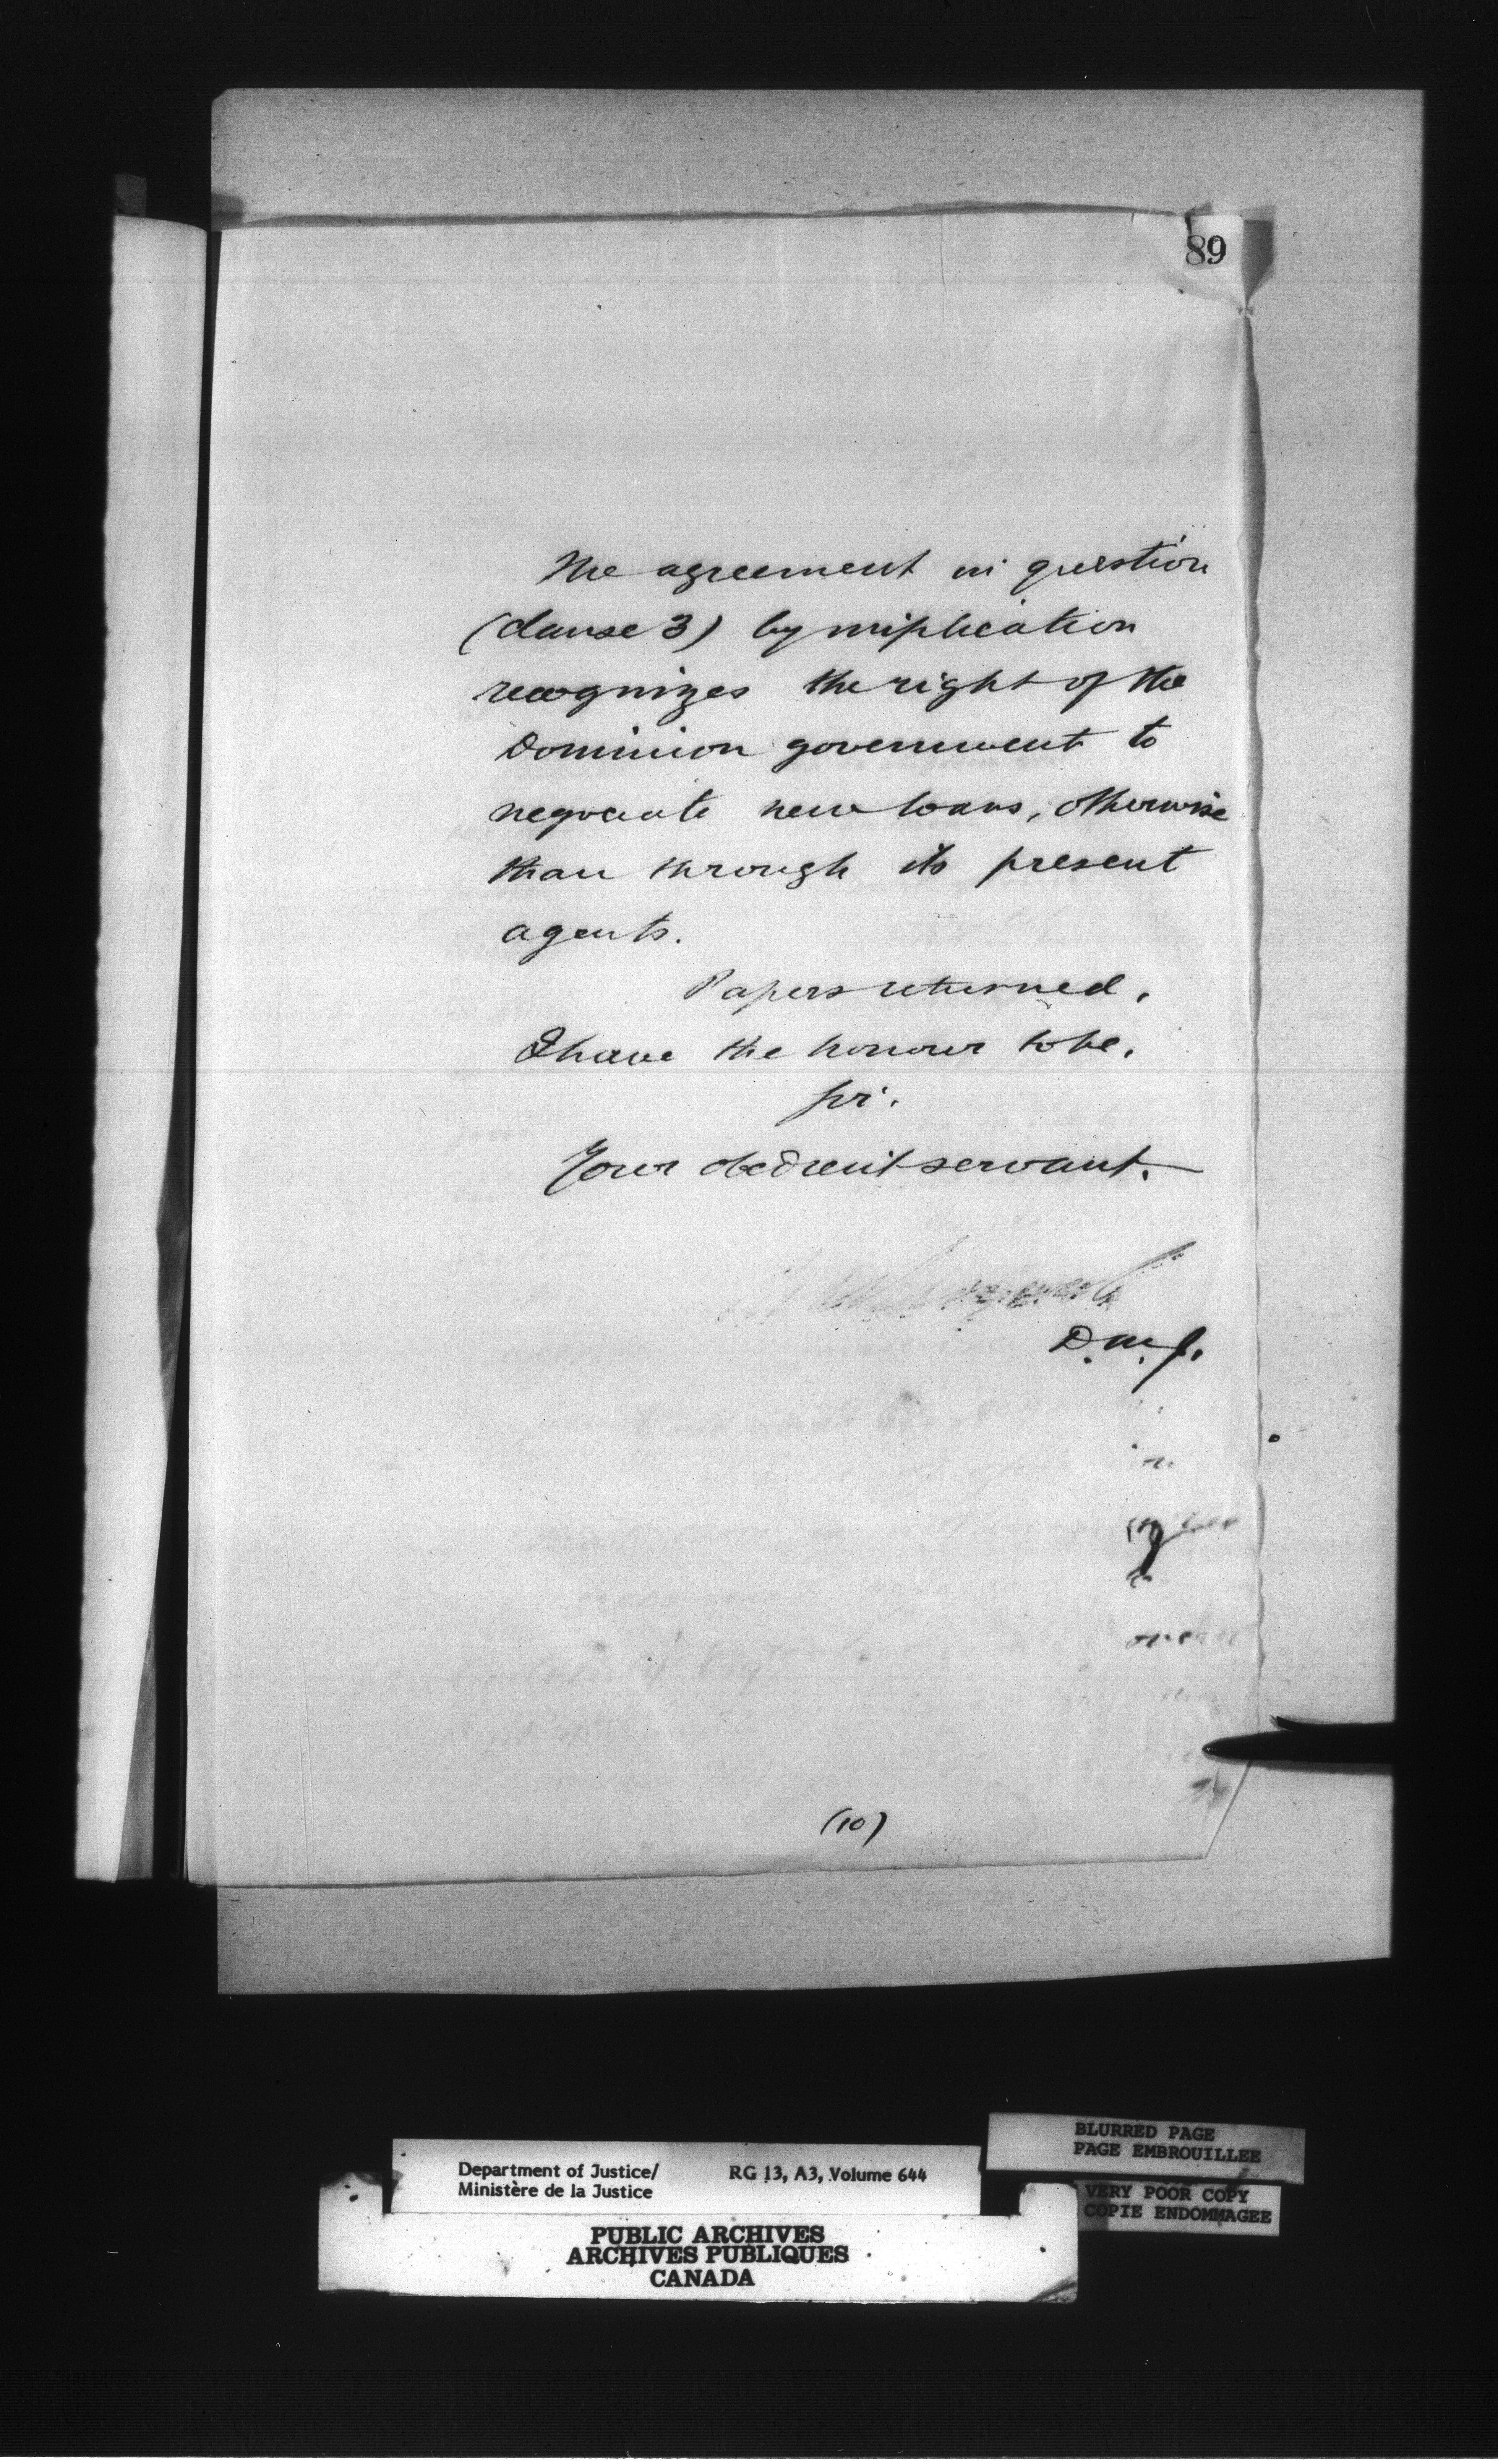 89
The agreement in question
(clause 3) by implication
recognizes the right of the
Dominion government to
negociate new loans, otherwise
than through its present
agents.
Papers returned.
I have the honour to be,
Sir.
Your obedient servant.
D.M.J.
(10)
BLURRED PAGE
PAGE EMBROUILLEE
Department of Justice/ RG 13, A3, Volume 644
Ministère de la Justice
VERY POOR COPY
COPIE ENDOMMAGEE
PUBLIC ARCHIVES
ARCHIVES PUBLIQUES
CANADA